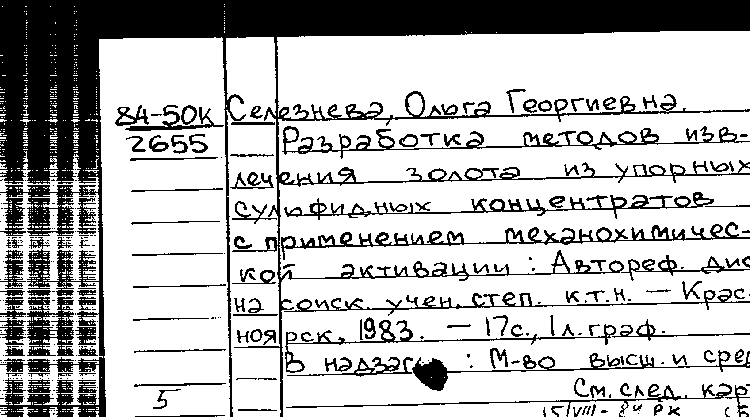 84-50к Селезнева, Ольга Георгиевна.
2655 Разработка методов изв-
лечения золота из упорных
сульфидных концентратов
с применением механохимичес-
кой активации : Автореф. дис
на соиск. учен. степ. к.т.н. — Крас-
ноярск, 1983. — 17с., 1л. граф.
В надзаг : М-во высш. и сред
5 См. след. кар
15/VIII - 84 РК